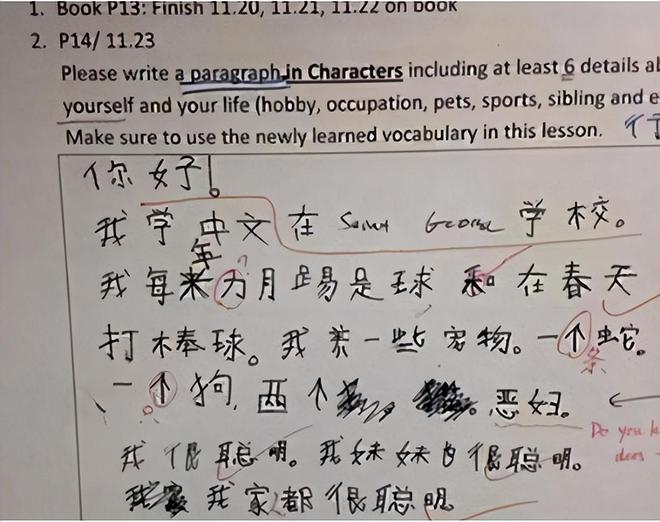 1. Book P13: Finish 11.20, 11.21, 11.22 on book
2. P14/ 11.23
Please write a paragraph in Characters including at least 6 details
yourself and your life (hobby, occupation, pets, sports, sibling and
Make sure to use the newly learned vocabulary in this lesson.
你好!
我学中文在 Saint George 学校。
年
我每月踢足球和在春天
打棒球。我养一些宠物。一个蛇。
条
一个狗,两个 恶妇。
Do you
ideas
我很聪明。我妹妹也很聪明。
我家都很聪明。